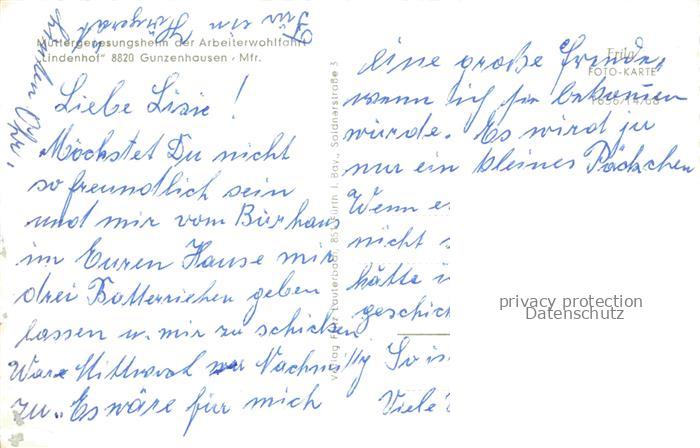 Müttergenesungsheim der Arbeiterwohlfahrt
"Lindenhof" 8820 Gunzenhausen, Mfr.
Für ein Hörgerät
kranken Ohr,
Liebe Lisie!
Möchstet Du nicht
so freundlich sein
und mir vom Bürhaus
im Euren Hause mir
drei Batteriehen geben
lassen u. mir zu schicken
Ware Mittwoch Nachmittg
zu. Es wäre für mich
Verlag Fritz Lauterbach, 851 Fürth i. Bay., Soldnerstraße 3
Frila
FOTO-KARTE
eine große Freude,
wenn ich sie bekommen
würde. Es wird ja
nur ein kleines Päckchen
Wenn e
nicht
hätte i
geschic
So is
Viele
privacy protection
Datenschutz